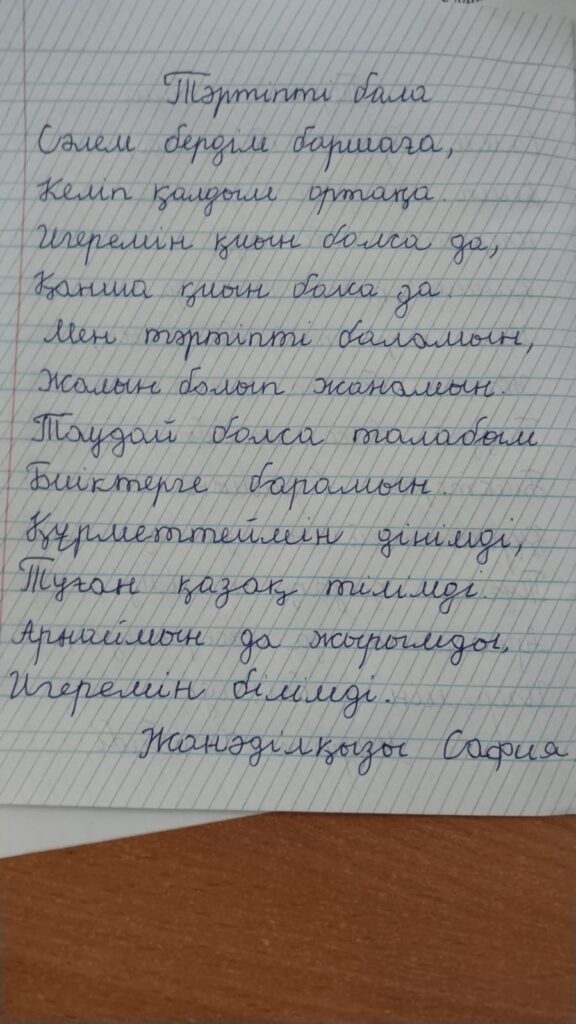 Тәртіпті бала
Сәлем бердім баршаға,
Келіп қалдым ортаңа.
Игеремін қиын болса да,
Қанша қиын болса да.
Мен тәртіпті баламын,
Жалын болып жанамын.
Таудай болса талабым
Биіктерге барамын.
Құрметтеймін дінімді,
Туған қазақ тілімді.
Арнаймын да жырымды,
Игеремін білімді.
Жанәділқызы Сафия